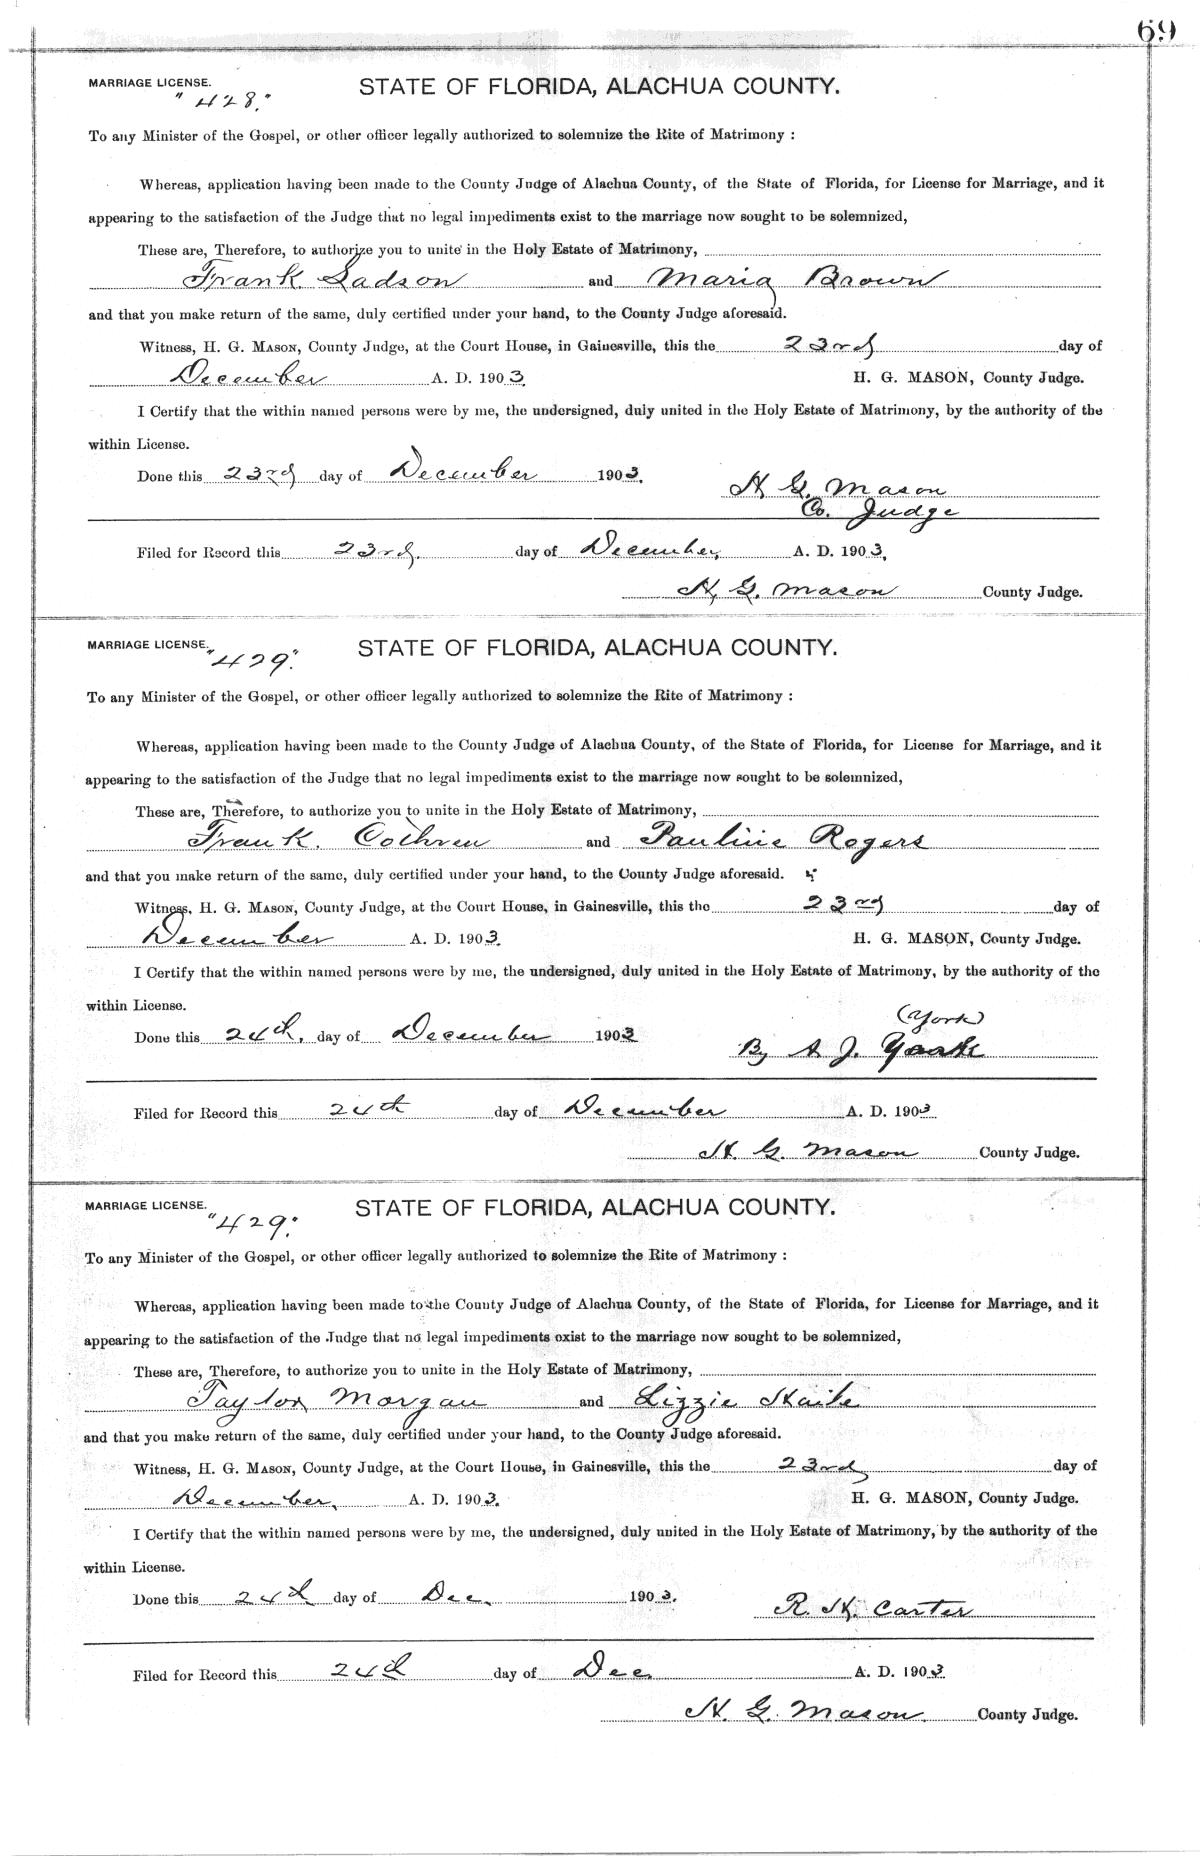 69
MARRIAGE LICENSE. STATE OF FLORIDA, ALACHUA COUNTY.
"428."
To any Minister of the Gospel, or other officer legally authorized to solemnize the Rite of Matrimony :
Whereas, application having been made to the County Judge of Alachua County, of the State of Florida, for License for Marriage, and it
appearing to the satisfaction of the Judge that no legal impediments exist to the marriage now sought to be solemnized,
These are, Therefore, to authorize you to unite in the Holy Estate of Matrimony,
Frank Ladson and Maria Brown
and that you make return of the same, duly certified under your hand, to the County Judge aforesaid.
Witness, H. G. MASON, County Judge, at the Court House, in Gainesville, this the 23rd day of
December A. D. 1903. H. G. MASON, County Judge.
I Certify that the within named persons were by me, the undersigned, duly united in the Holy Estate of Matrimony, by the authority of the
within License.
Done this 23rd day of December 1903. H G. Mason
Co. Judge
Filed for Record this 23rd. day of December, A. D. 1903,
H. G. Mason County Judge.
MARRIAGE LICENSE. STATE OF FLORIDA, ALACHUA COUNTY.
"429."
To any Minister of the Gospel, or other officer legally authorized to solemnize the Rite of Matrimony :
Whereas, application having been made to the County Judge of Alachua County, of the State of Florida, for License for Marriage, and it
appearing to the satisfaction of the Judge that no legal impediments exist to the marriage now sought to be solemnized,
These are, Therefore, to authorize you to unite in the Holy Estate of Matrimony,
Frank. Cothren and Pauline Rogers
and that you make return of the same, duly certified under your hand, to the County Judge aforesaid.
Witness, H. G. MASON, County Judge, at the Court House, in Gainesville, this the 23rd day of
December A. D. 1903. H. G. MASON, County Judge.
I Certify that the within named persons were by me, the undersigned, duly united in the Holy Estate of Matrimony, by the authority of the
within License.
(York)
Done this 24th, day of December 1903 By A J. York
Filed for Record this 24th day of December A. D. 1903
H. G. Mason County Judge.
MARRIAGE LICENSE. STATE OF FLORIDA, ALACHUA COUNTY.
"429."
To any Minister of the Gospel, or other officer legally authorized to solemnize the Rite of Matrimony :
Whereas, application having been made to the County Judge of Alachua County, of the State of Florida, for License for Marriage, and it
appearing to the satisfaction of the Judge that no legal impediments exist to the marriage now sought to be solemnized,
These are, Therefore, to authorize you to unite in the Holy Estate of Matrimony,
Taylor Morgan and Lizzie Haile
and that you make return of the same, duly certified under your hand, to the County Judge aforesaid.
Witness, H. G. MASON, County Judge, at the Court House, in Gainesville, this the 23rd day of
December, A. D. 1903. H. G. MASON, County Judge.
I Certify that the within named persons were by me, the undersigned, duly united in the Holy Estate of Matrimony, by the authority of the
within License.
Done this 24th day of Dec. 1903. R. H. Carter
Filed for Record this 24th day of Dec A. D. 1903
H. G. Mason. County Judge.